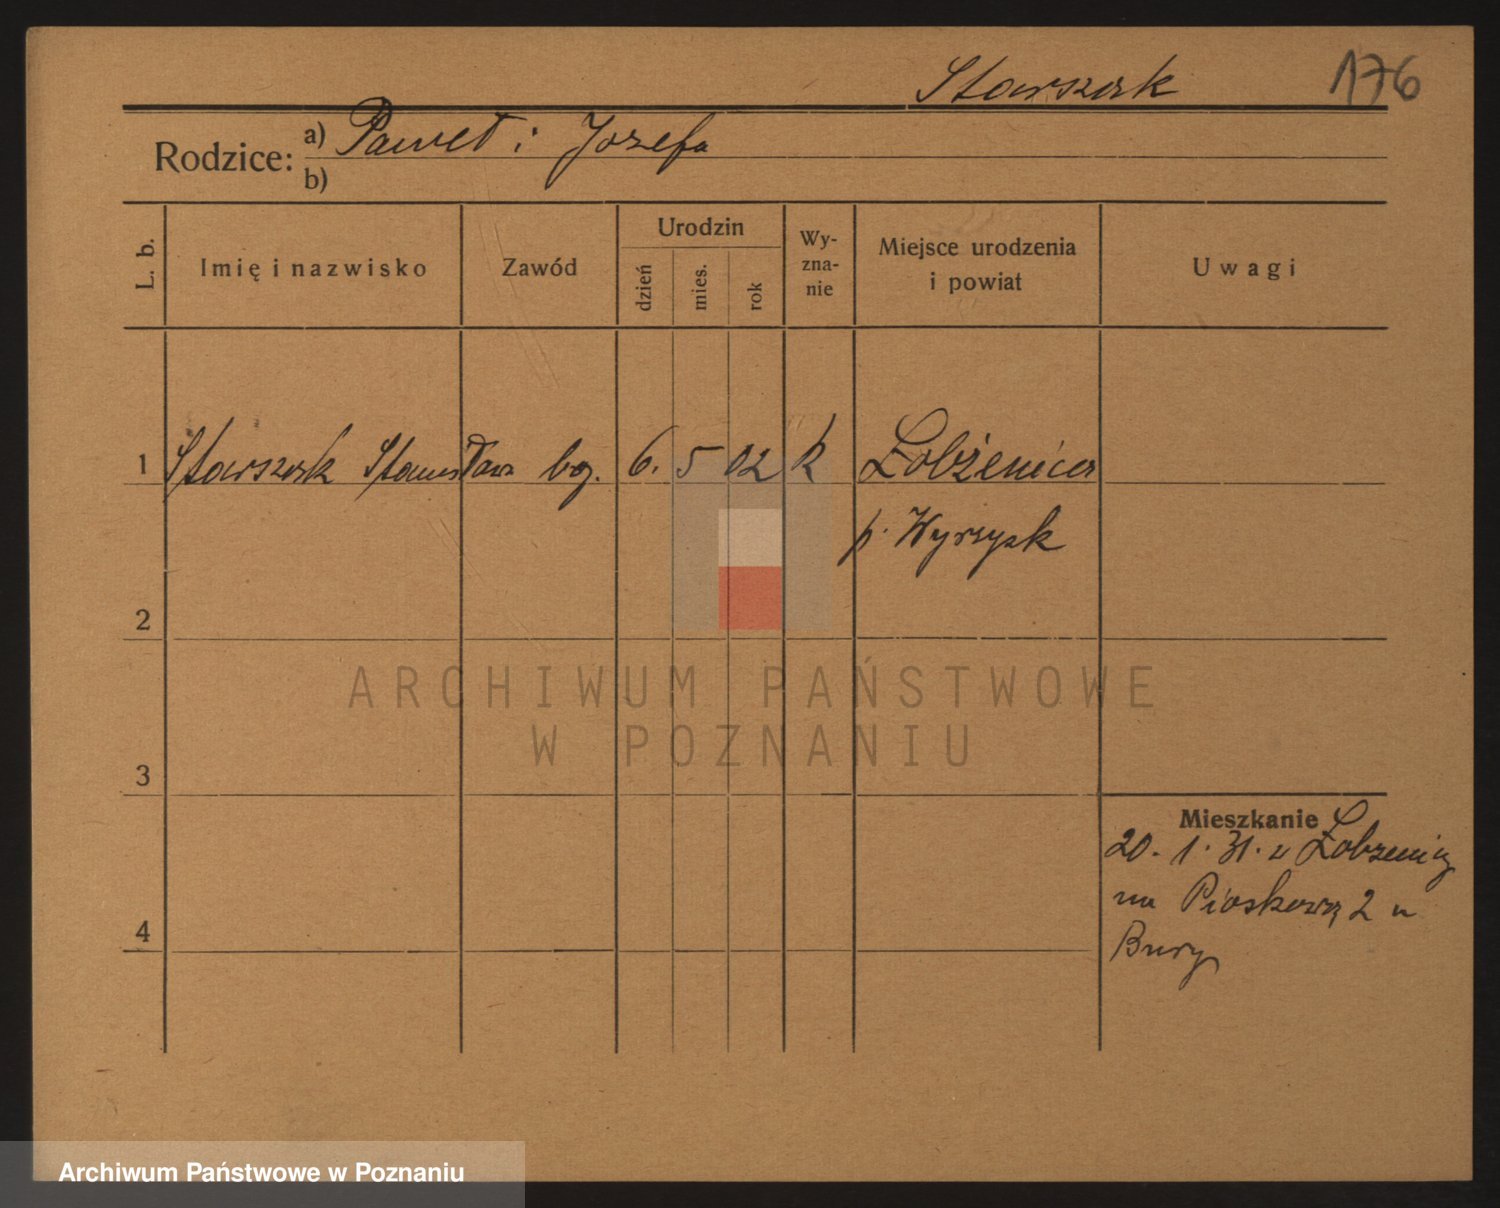 Starszak 176
Rodzice: a) Paweł i Jozefa
b)
L. b. Imię i nazwisko Zawód Urodzin dzień mies. rok Wy-zna-nie Miejsce urodzenia i powiat Uwagi
1 Starszak Stanisława 6. 5 02 k Łobżenica
p. Wyrzysk
2
3
4
Mieszkanie
20. 1. 31. z Łobzenicy
na Piaskową 2 u
Bury
ARCHIWUM PAŃSTWOWE
W POZNANIU
Archiwum Państwowe w Poznaniu